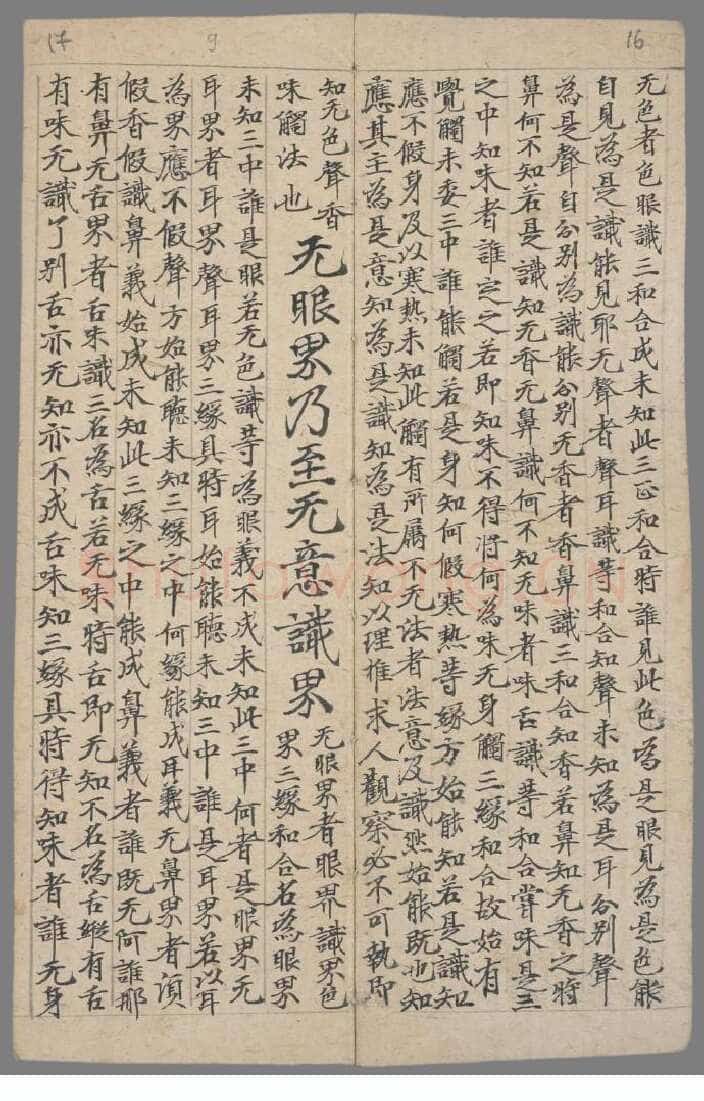 16
无色者色眼識三和合成未知此三正和合時誰見此色為是眼見為是色能
自見為是識能見耶无聲者聲耳識等和合知聲未知為是耳分別聲
為是聲自分別為識能分別无香者香鼻識三和合知香若鼻知无香之時
鼻何不知若是識知无香无鼻識何不知无味者味舌識等和合甞味是三
之中知味者誰定之若即知味不得將何為味无身觸三緣和合故始有
覺觸未委三中誰能觸若是身知何假寒熱等緣方始能知若是識知
應不假身及以寒熱未知此觸有所屬不无法者法意及識然始能既也知
應其主為是意知為是識知為是法知以理推求人觀察必不可執即
17 9
知无色聲香
味觸法也
无眼界乃至无意識界
无眼界者眼界識界色
界三緣和合名為眼界
未知三中誰是眼若无色識等為眼義不成未知此三中何者是眼界无
耳界者耳界聲耳界三緣具時耳始能聽未知三中誰是耳界若以耳
為界應不假聲方始能聽未知三緣之中何緣能成耳義无鼻界者須
假香假識鼻義始成未知此三緣之中能成鼻義者誰既无何誰耶
有鼻无舌界者舌味識三名為舌若无味時舌即无知不名為舌縱有舌
有味无識了別舌亦无知亦不成舌味知三緣具時得知味者誰无身